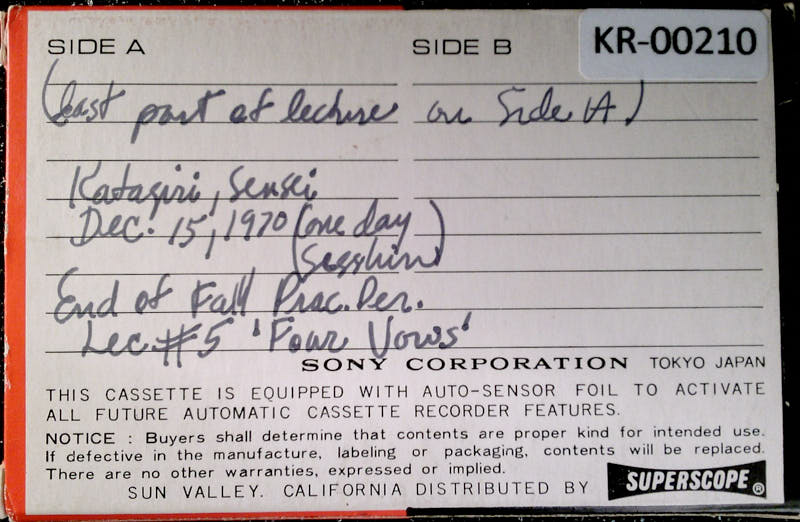 SIDE A SIDE B KR-00210
(Last part of lecture on Side A)
Katagiri, Sensei
Dec. 15, 1970 (one day
Sesshin)
End of Fall Prac. Per.
Lec. #5 'Four Vows'
SONY CORPORATION TOKYO JAPAN
THIS CASSETTE IS EQUIPPED WITH AUTO-SENSOR FOIL TO ACTIVATE
ALL FUTURE AUTOMATIC CASSETTE RECORDER FEATURES.
NOTICE : Buyers shall determine that contents are proper kind for intended use.
If defective in the manufacture, labeling or packaging, contents will be replaced.
There are no other warranties, expressed or implied.
SUN VALLEY. CALIFORNIA DISTRIBUTED BY SUPERSCOPE®